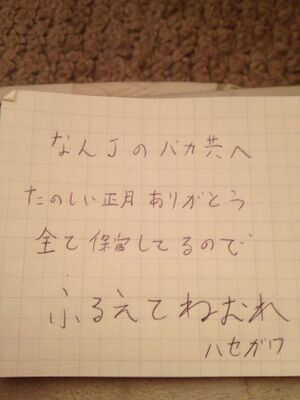 なんJのバカ共へ
たのしい正月ありがとう
全て保留してるので
ふるえてねむれ
ハセガワ